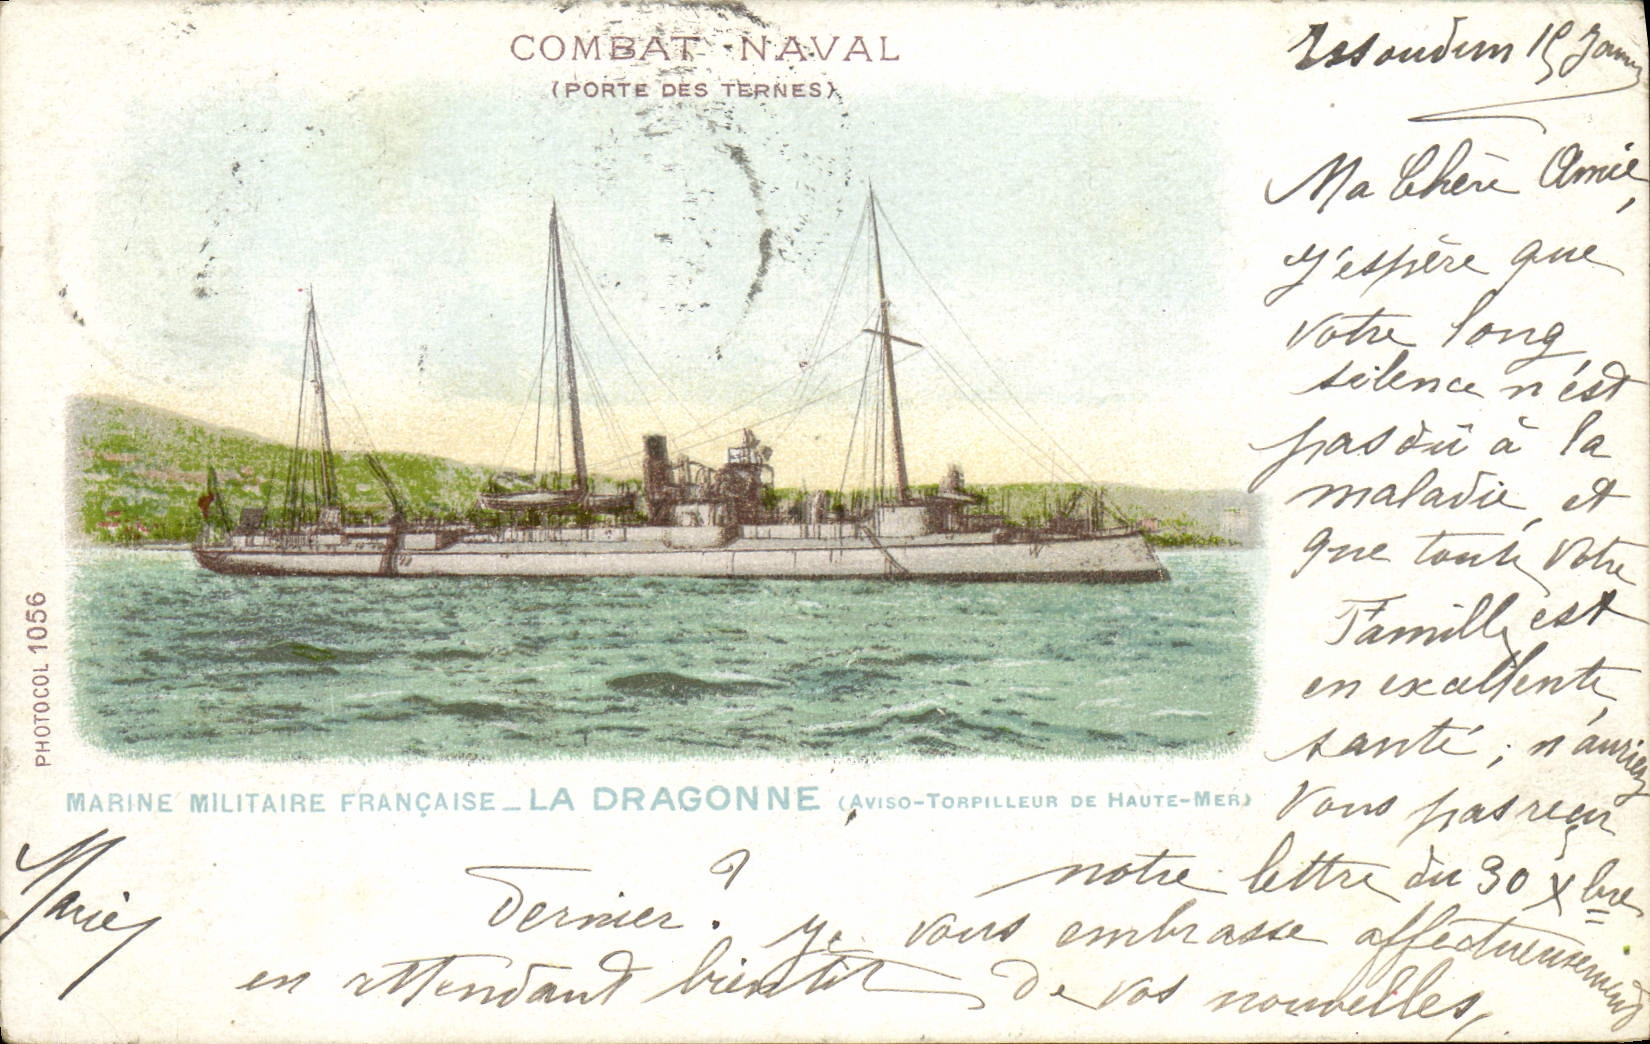 COMBAT NAVAL
(PORTE DES TERNES)
PHOTOCOL 1056
MARINE MILITAIRE FRANÇAISE_LA DRAGONNE (AVISO-TORPILLEUR DE HAUTE-MER)
Issoudun 15 Janv
Ma Chère Amie,
J'espère que
votre long
silence n'est
pas dû à la
maladie, et
que toute votre
Famille est
en excellente
santé; n'auriez
vous pas reçu
notre lettre du 30 Xbre
dernier? Je vous embrasse affectueusement
en attendant bientôt de vos nouvelles,
Marie